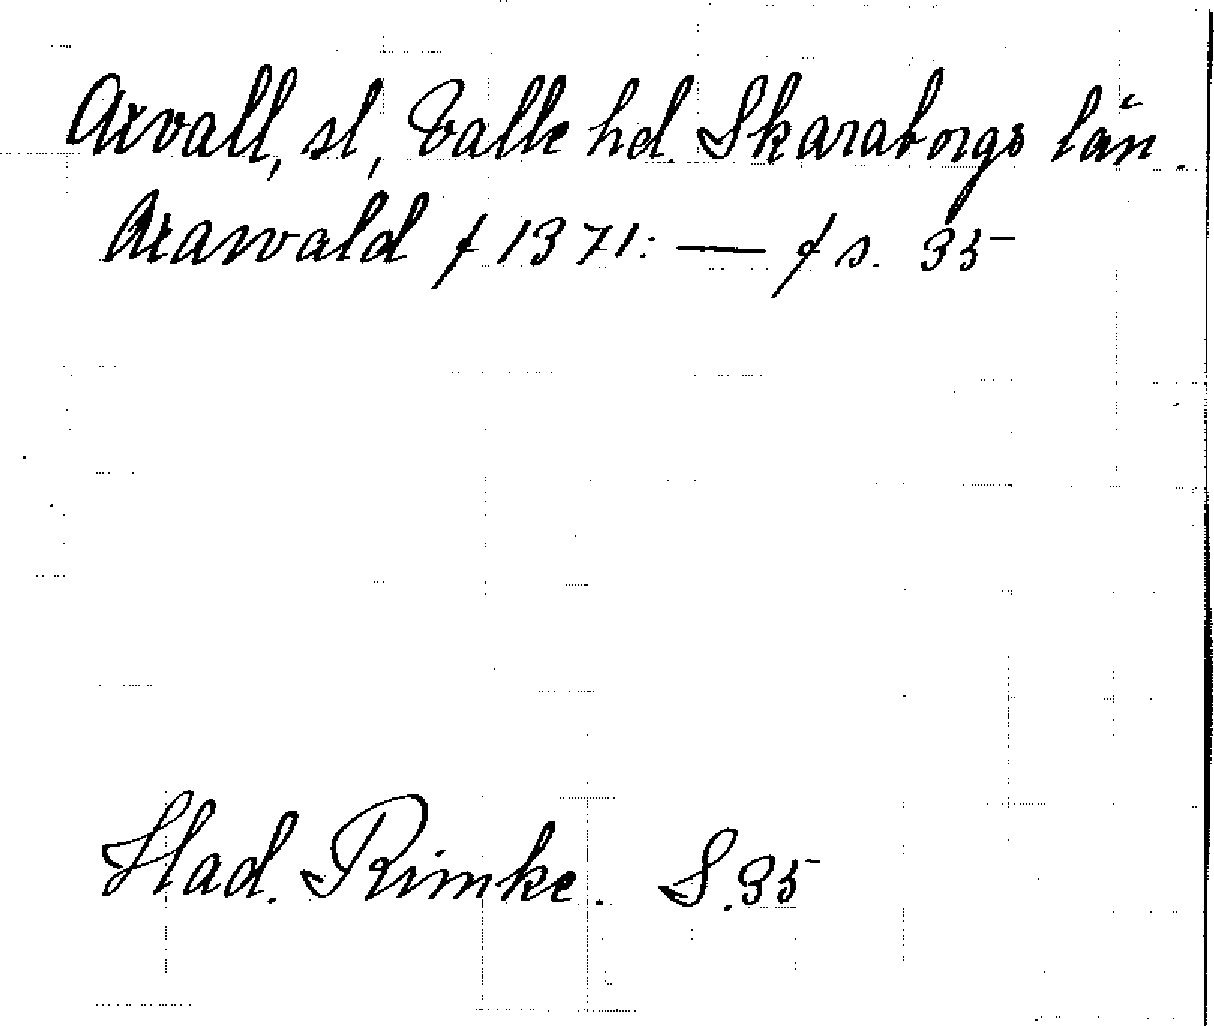 Axvall, sl, Valle hd. Skaraborgs län.
Axawald f 1371: — f s. 35
Had. Rimkr. S. 35